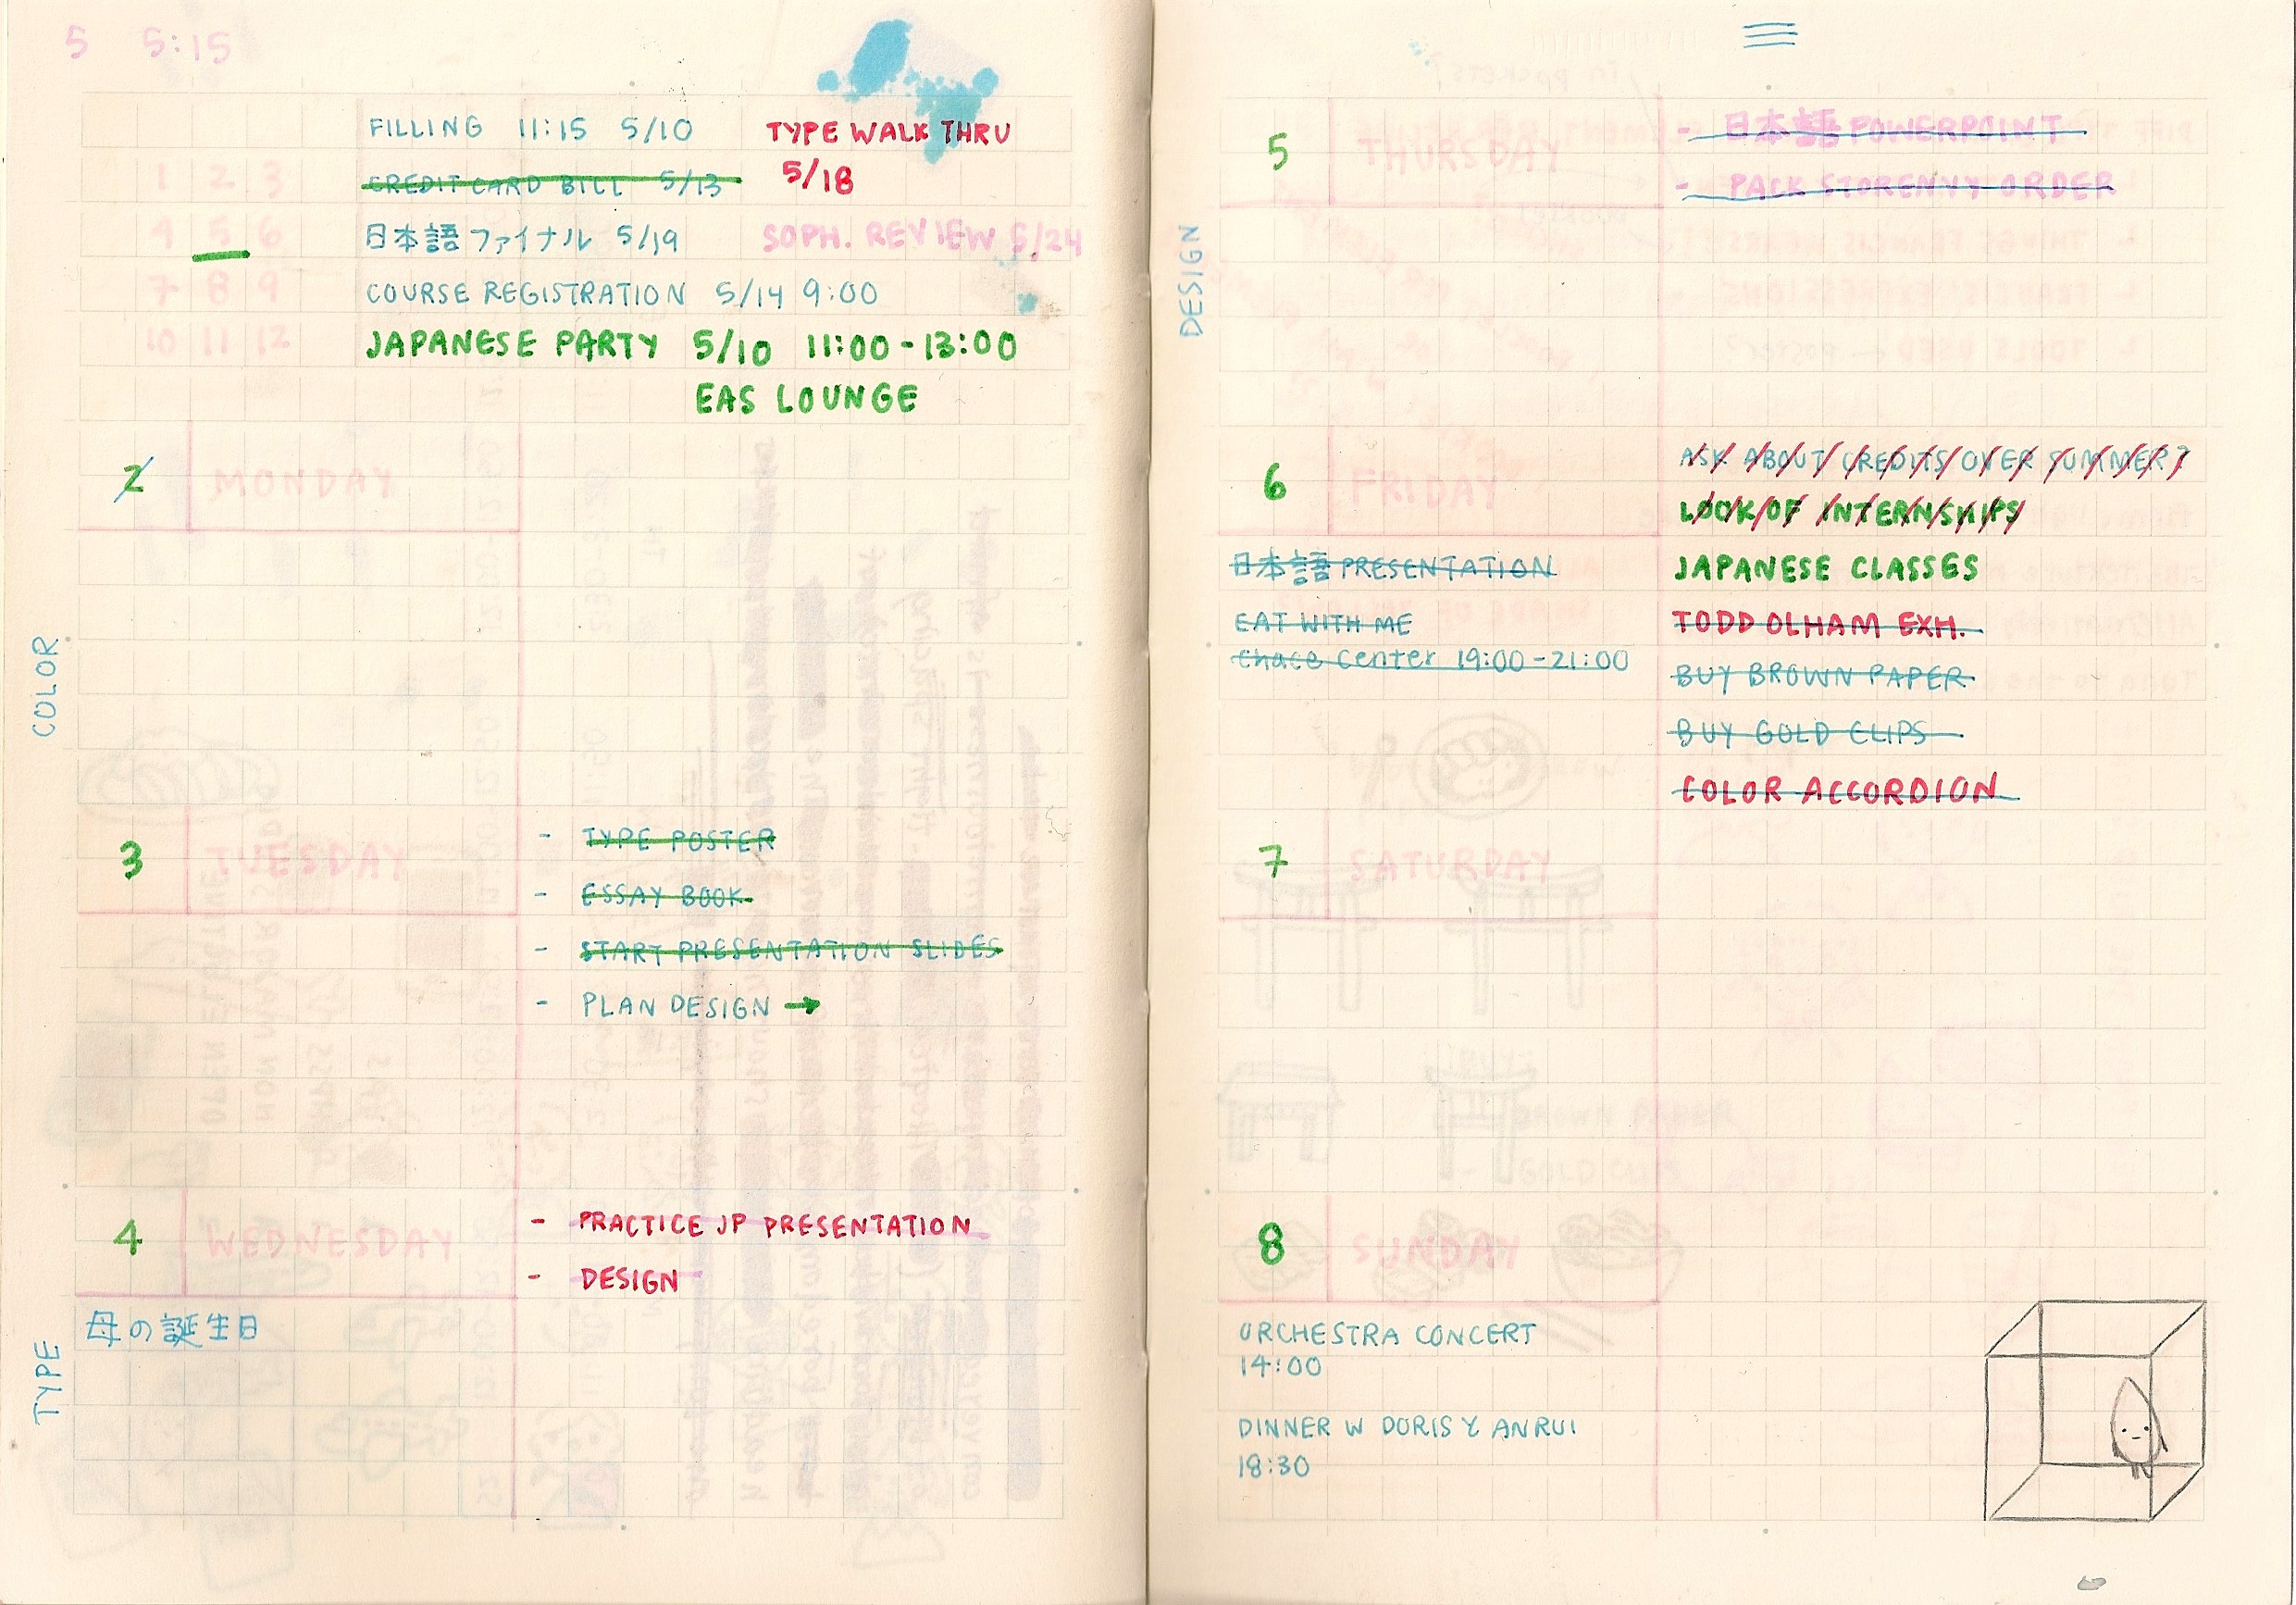 5 5:15
FILLING 11:15 5/10
CREDIT CARD BILL 5/13
日本語 ファイナル 5/19
COURSE REGISTRATION 5/14 9:00
JAPANESE PARTY 5/10 11:00-13:00
EAS LOUNGE
TYPE WALK THRU
5/18
SOPH. REVIEW 5/24
1 2 3
4 5 6
7 8 9
10 11 12
COLOR
2 MONDAY
3 TUESDAY
- TYPE POSTER
- ESSAY BOOK
- START PRESENTATION SLIDES
- PLAN DESIGN →
TYPE
4 WEDNESDAY
- PRACTICE JP PRESENTATION
- DESIGN
母の誕生日
DESIGN
5 THURSDAY
- 日本語 POWERPOINT
- PACK STORENVY ORDER
6 FRIDAY
ASK ABOUT CREDITS OVER SUMMER?
LOOK OF INTERNSHIPS
JAPANESE CLASSES
TODD OLHAM EXH.
BUY BROWN PAPER
BUY GOLD CLIPS
COLOR ACCORDION
日本語 PRESENTATION
EAT WITH ME
Chace Center 19:00-21:00
7 SATURDAY
8 SUNDAY
ORCHESTRA CONCERT
14:00
DINNER W DORIS Y ANRUI
18:30